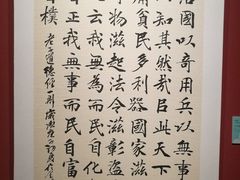 治國以奇用兵以無事
知其然哉㠯此天下
彌貧民多利器國家滋
奇物滋起法令滋彰盜
人云我無為而民自化
自正我無事而民自富
自樸
老子道德經一則